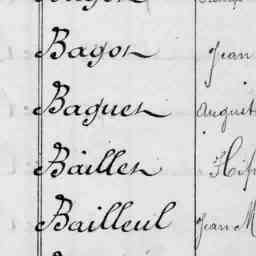 Bagot Jean
Baguet August
Baillet Hip
Bailleul Jean M